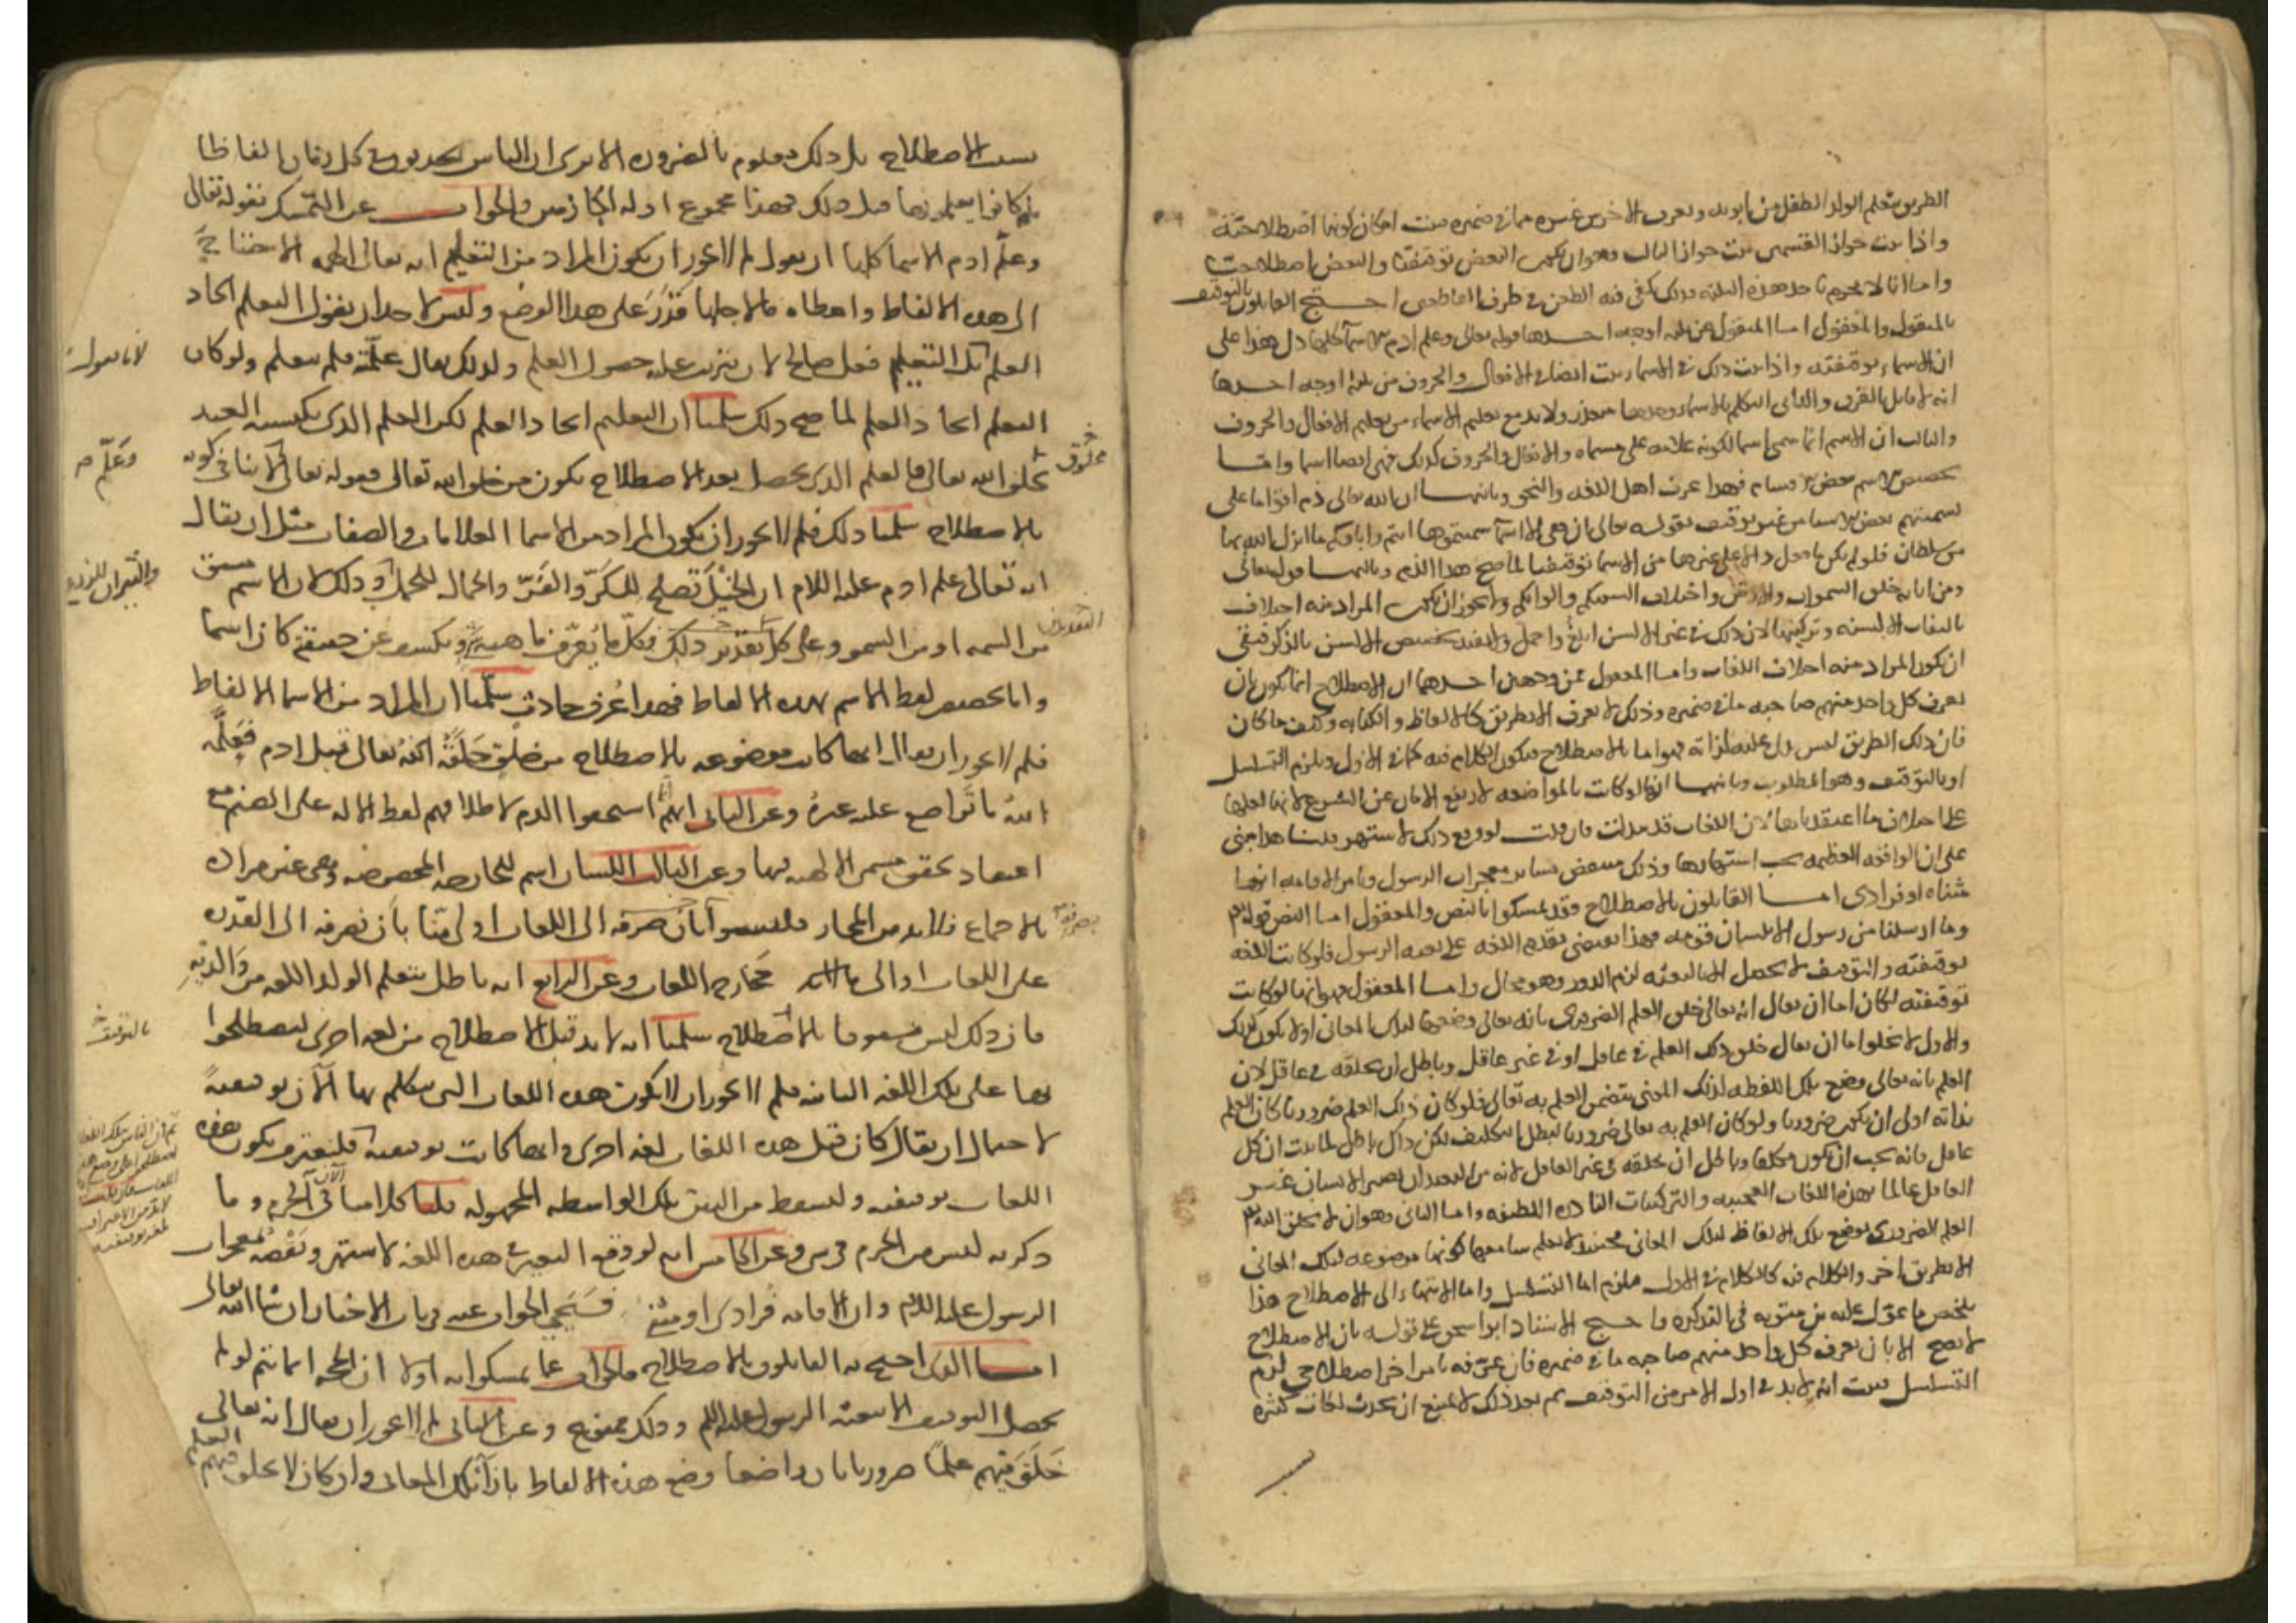 الطريق بتعلم الولد الطفل من ابويه ويعرف الاخرس غيره ما في ضميره ثبت امكان كونها اصطلاحية
واذا ثبت جواز القسمين ثبت جواز الثالث وهو ان يكون البعض توقيفيا والبعض اصطلاحيا
واما انا لا نجزم باحد هذه الثلثة فذلك يكفي فيه الطعن في طرق القاطعين احتج القايلون بالتوقيف
بالمنقول والمعقول اما المنقول فمن ثلثة اوجه احدها قوله تعالى وعلم ادم الاسما كلها دل هذا على
ان الاسماء توقيفية واذا ثبت ذلك في الاسماء ثبت ايضا في الافعال والحروف من ثلثة اوجه احدها
انه لا قايل بالفرق والثاني التكلم بالاسماء وحدها متعذر ولا بد مع تعليم الاسماء من تعليم الافعال والحروف
والثالث ان الاسم انما سمي اسما لكونه علامة على مسماه والافعال والحروف كذلك فهي ايضا اسما واما
تخصيص الاسم ببعض الاقسام فهذا عرف اهل اللغة والنحو وثانيها ان الله تعالى ذم اقواما على
تسميتهم بعض الاسما من غير توقيف بقوله تعالى ان هي الا اسما سميتموها انتم واباؤكم ما انزل الله بها
من سلطان فلو لم يكن ما دل على غيرها من الاسما توقيفيا لما صح هذا الذم وثالثها قوله تعالى
ومن اياته خلق السموات والارض واختلاف السنتكم والوانكم ولا يجوز ان يكون المراد منه اختلاف
تاليفات الالسنة وتركيبها لان ذلك في غير الالسن ابلغ واجمل ولا يفيد تخصيص الالسن بالذكر فبقي
ان يكون المراد منه اختلاف اللغات واما المعقول فمن وجهين احدهما ان الاصطلاح انما يكون بان
يعرف كل واحد منهم صاحبه ما في ضميره وذلك لا يعرف الا بطريق كالالفاظ والكتابة وكيف ما كان
فان ذلك الطريق ليس يدل عليه لذاته فهو اما بالاصطلاح فيكون الكلام فيه كما في الاول ويلزم التسلسل
او بالتوقيف وهو المطلوب وثانيها انها لو كانت بالمواضعة لارتفع الامان عن الشرع لانها لعلها
على خلاف ما اعتقدناها لان اللغات قد تبدلت فان قلت لو وقع ذلك لاشتهر قلنا هذا مبني
على ان الواقعة العظيمة يجب اشتهارها وذلك ينتقض بساير معجزات الرسول وبامر الاقامة انها
مثناه او فرادى اما القايلون بالاصطلاح فقد تمسكوا بالنص والمعقول اما النص قوله تع
وما ارسلنا من رسول الا بلسان قومه فهذا يقتضي تقدم اللغة على بعثة الرسول فلو كانت اللغة
توقيفية والتوقيف لا يحصل الا بالبعثة لزم الدور وهو محال واما المعقول فهو انها لو كانت
توقيفية لكان اما ان يقال انه تعالى خلق العلم الضروري بانه تعالى وضعها لتلك المعاني او لا يكون كذلك
والاول لا يخلوا اما ان يقال خلق ذلك العلم في عاقل او في غير عاقل وباطل ان يخلقه في عاقل لان
العلم بانه تعالى وضع تلك اللفظة لذلك المعنى يتضمن العلم به تعالى فلو كان ذلك العلم ضروريا كان العلم
بذاته اولى ان يكون ضروريا ولو كان العلم به تعالى ضروريا لبطل التكليف لكن ذاك باطل لما ثبت ان كل
عاقل فانه يجب ان يكون مكلفا وباطل ان يخلقه في غير العاقل لانه من البعيد ان يصير الانسان غير
العاقل عالما بهذه اللغات العجيبة والتركيبات النادرة اللطيفة واما الثاني وهو ان لا يخلق الله تع
العلم الضروري بوضع تلك الالفاظ لتلك المعاني فحينئذ لا يعلم سامعها كونها موضوعة لتلك المعاني
الا بطريق اخر والكلام فيه كالكلام في الاول فيلزم اما التسلسل واما الانتهاء الى الاصطلاح هذا
ملخص ما عول عليه بن متويه في التذكرة واحتج الاستاذ ابو اسحق على قوله بان الاصطلاح
لا يصح الا بان يعرف كل واحد منهم صاحبه ما في ضميره فان عرفه بامر اخر اصطلاحي لزم
التسلسل فثبت انه لا بد في اول الامر من التوقيف ثم بعد ذلك لا يمتنع ان يحدث لغات كثيرة
بسبب الاصطلاح بل ذلك معلوم بالضرورة الا ترى ان الناس يحدثون في كل زمان الفاظا
ما كانوا يعلمونها قبل ذلك فهذا مجموع ادلة الجازمين والجواب عن التمسك بقوله تعالى
وعلم ادم الاسما كلها ان يقول لم لا يجوز ان يكون المراد من التعليم انه تعالى الهمه الاحتياج
الى هذه الالفاظ واعطاه ما لاجلها قدر على هذا الوضع وليس لاحد ان يقول التعليم ايجاد
العلم بل التعليم فعل صالح لان يترتب عليه حصول العلم ولذلك يقال علمته فلم يتعلم ولو كان
لانا نقول
التعليم ايجاد العلم لما صح ذلك سلمنا ان التعليم ايجاد العلم لكن العلم الذي يكتسبه العبد
مخلوق لله تعالى فالعلم الذي يحصل بعد الاصطلاح يكون من خلق الله تعالى فقوله تعالى لا ينافي كونه
وعلم
بالاصطلاح سلمنا ذلك فلم لا يجوز ان يكون المراد من الاسما العلامات والصفات مثل ان يقال
انه تعالى علم ادم عليه السلام ان الخيل تصلح للكر والفر والجمال للحمل وذلك لان الاسم مشتق
والثيران للزرع
من السمة او من السمو وعلى كل تقدير ذلك فكل ما يعرف ماهية ويكشف عن حقيقة كان اسما
التقديرين
واما تخصيص لفظ الاسم بهذه الالفاظ فهذا عرف حادث سلمنا ان المراد من الاسما الالفاظ
فلم لا يجوز ان يقال انها كانت موضوعة بالاصطلاح من خلق خلقه الله تعالى قبل ادم فعلمه
الله ما تواضع عليه غيره وعن الثاني انهم استحقوا الذم لاطلاقهم لفظ الاله على الصنم مع
اعتقاد تحقق مسمى الالهية فيها وعن الثالث اللسان اسم للجارحة المخصوصة وهي غير مرادة
بالاجماع فلا بد من المجاز فليسوا بان صرفه الى اللغات اولى منا بان نصرفه الى القدرة
على اللغات او الى مخارج اللغات وعن الرابع انه باطل بتعلم الولد اللغة من والديه
فان ذلك ليس مسبوقا بالاصطلاح سلمنا انه لا بد قبل الاصطلاح من لغة اخرى ليصطلحوا
بالتوقيف
بها على تلك اللغة الثانية فلم لا يجوز ان لا يكون هذه اللغات التي نتكلم بها الان توقيفية
لاحتمال ان يقال كان قبل هذه اللغات لغة اخرى وانها كانت توقيفية فليعترف بكون هذه
اللغات توقيفية ولنسقط من البين تلك الواسطة المجهولة قلنا كلامنا الان في الجزم وما
ذكرته ليس من الجزم في شي وعن الخامس انه لو وقع التغيير في هذه اللغة لاشتهر ونقضه بمعجزات
الرسول عليه السلم وان الاقامة فرادى او مثنى فسيجي الجواب عنه في باب الاخبار ان شا الله تعالى
اما الذي احتج به القايلون بالاصطلاح فالجواب عما تمسكوا به اولا ان الحجة انما تتم لو لم
يحصل التوقيف الا ببعثة الرسول عليه السلم وذلك ممنوع وعن الثاني لم لا يجوز ان يقال انه تعالى
خلق فيهم علما ضروريا بان واضعا وضع هذه الالفاظ بازاء تلك المعاني وان كان لا يخلق فيهم العلم